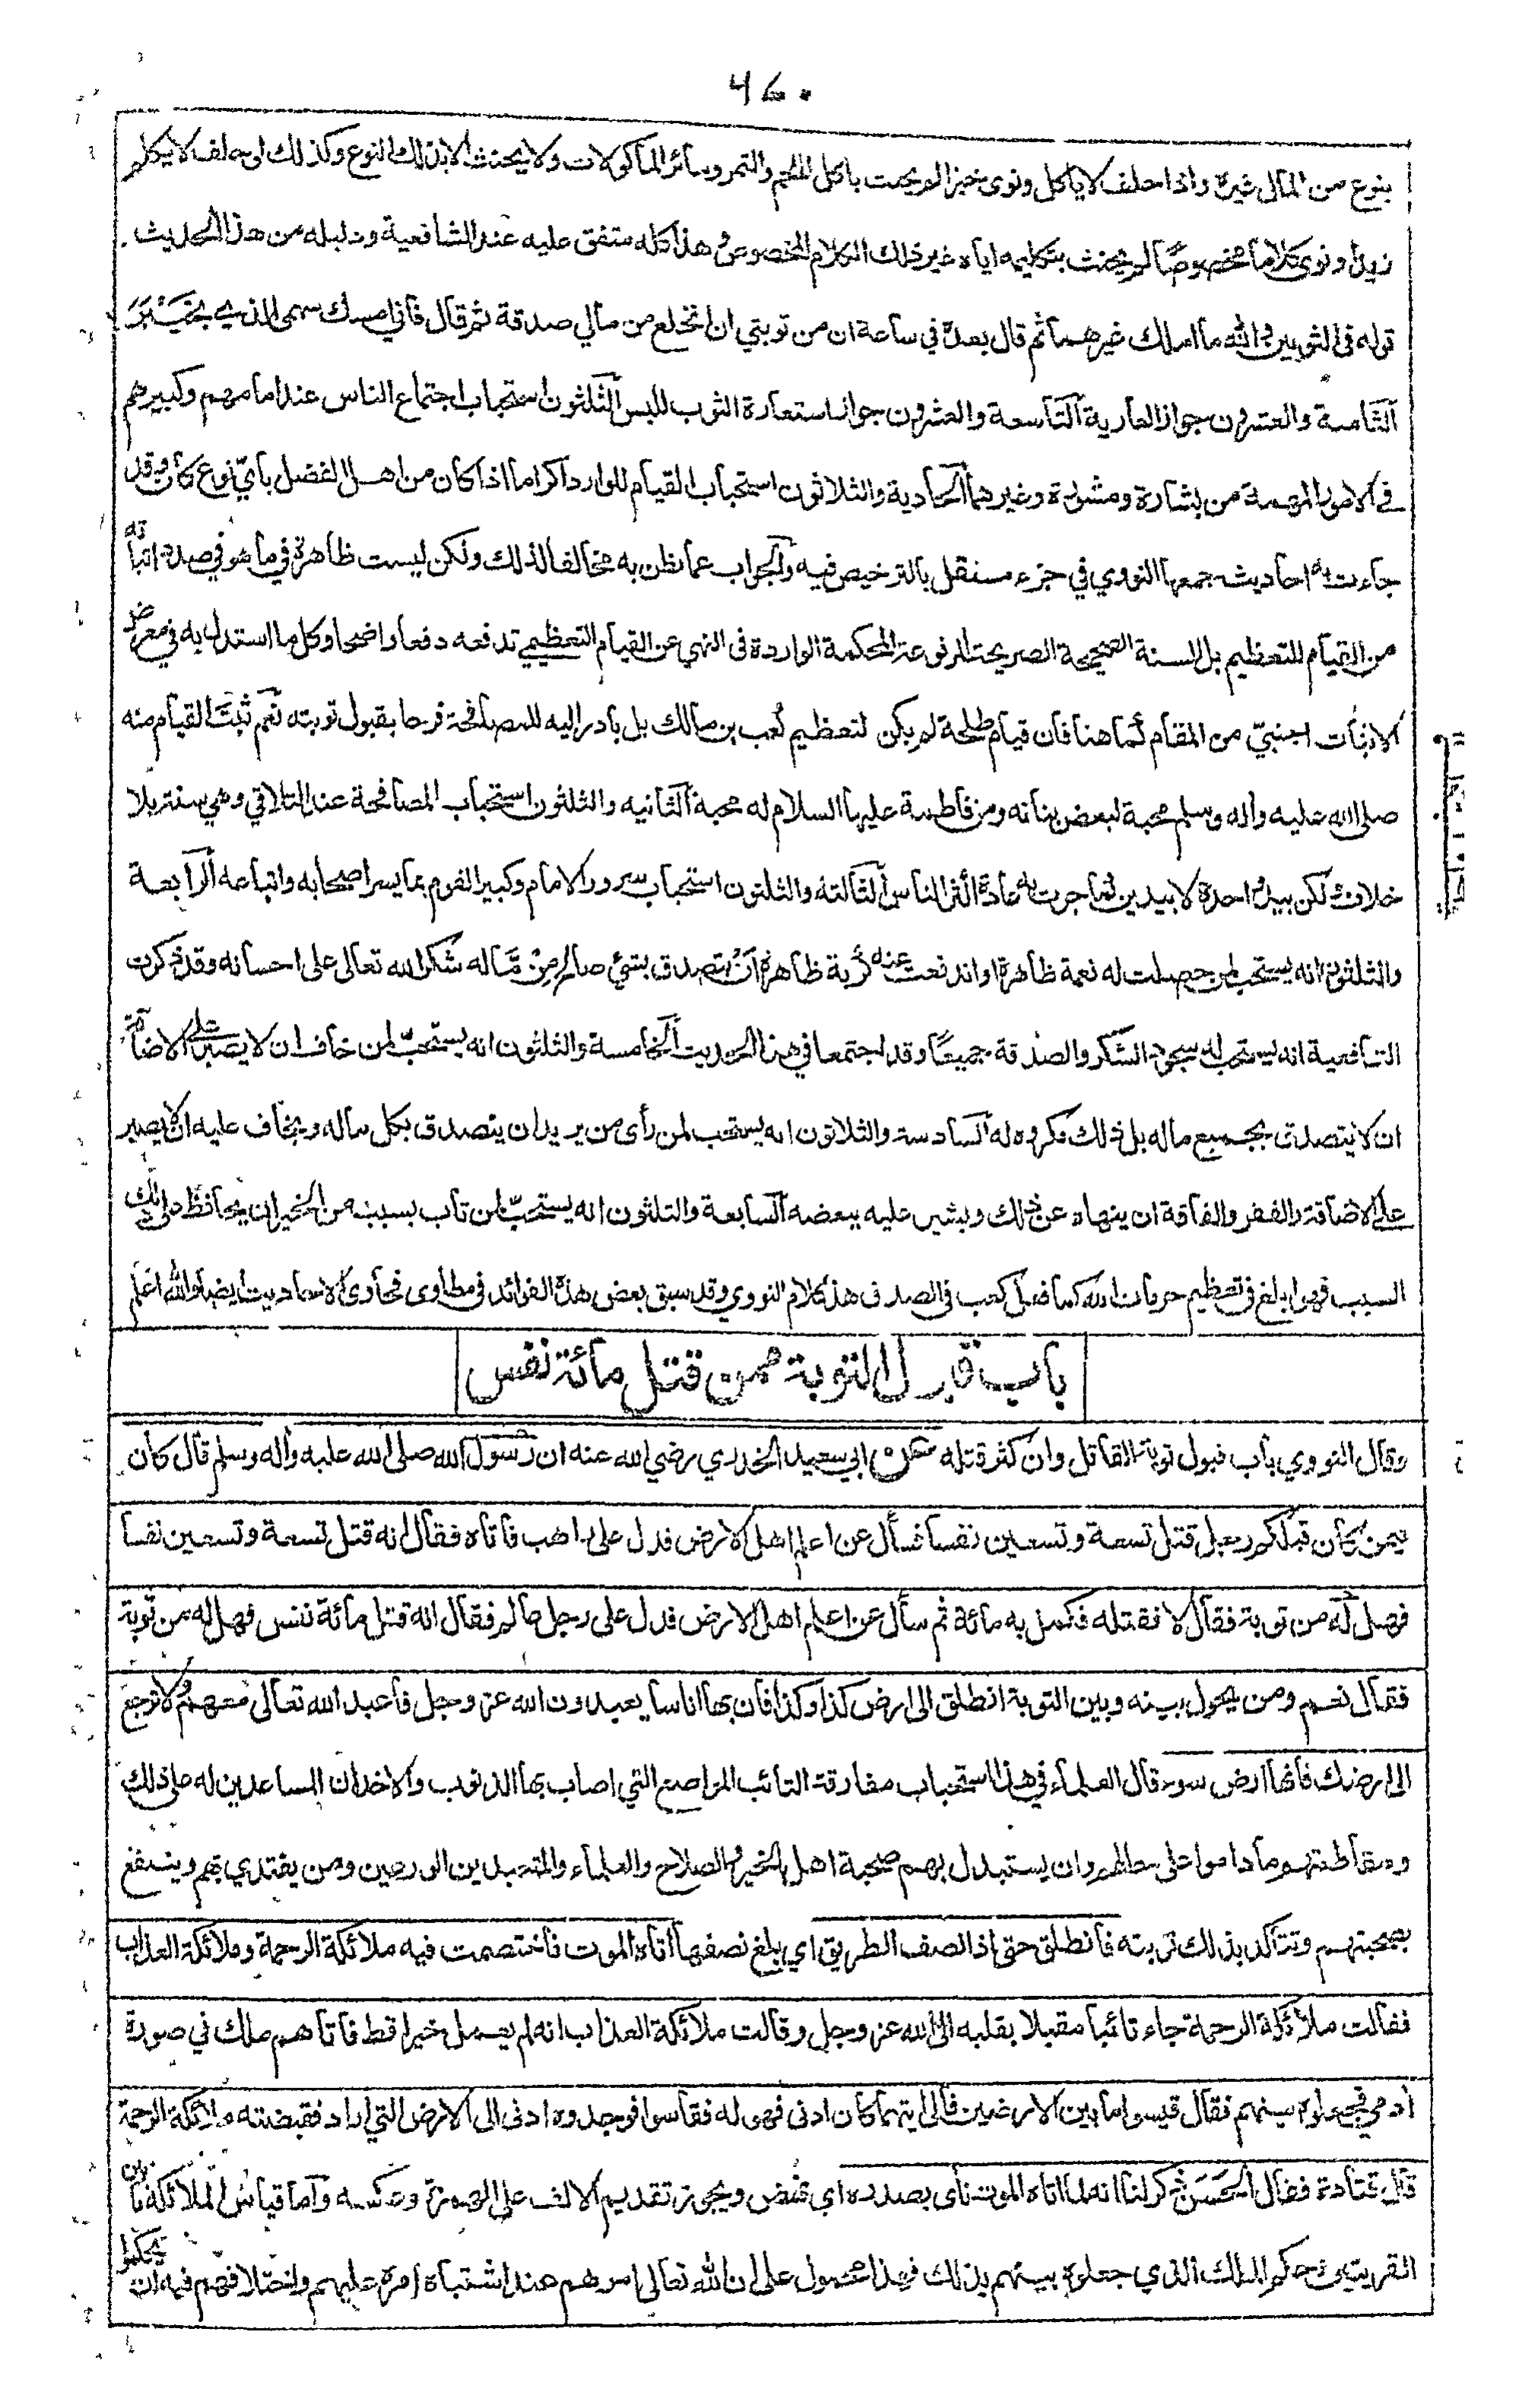 ۴۶۰
بنوع من المال غيره واذا حلف لا ياكل ونوى خبزا لم يحنث باكل اللحم والتمر وسائر المأكولات ولا يحنث الا بذلك النوع وكذلك لو حلف لا يكلم
زيدا ونوى كلاما مخصوصا لم يحنث بتكليمه اياه غير ذلك الكلام المخصوص وهذا كله متفق عليه عند الشافعية ودليله من هذا الحديث
قوله فى الثوبين والله ما املك غيرهما ثم قال بعدُ في ساعة ان من توبتي ان انخلع من مالي صدقة ثم قال فاني امسك سهمى الذي بخيبر
الثامنة والعشرون جواز العارية التاسعة والعشرون جواز استعارة الثوب للبس الثلثون استحباب اجتماع الناس عند امامهم وكبيرهم
في الامور المهمة من بشارة ومشورة وغيرهما الحادية والثلاثون استحباب القيام للوارد اكراما اذا كان من اهل الفضل بأيّ نوع كان وقد
جاءت به احاديث جمعها النووي في جزء مستقل بالترخيص فيه والجواب عما يظن به مخالفا لذلك ولكن ليست ظاهرة في ما هو في صدد اثباته
من القيام للتعظيم بل السنة الصحيحة الصريحة المرفوعة المحكمة الواردة فى النهي عن القيام التعظيمي تدفعه دفعا واضحا وكل ما استدل به في معرض
الاثبات اجنبيّ من المقام كما هنا فان قيام طلحة لم يكن لتعظيم كعب بن مالك بل بادر اليه للمصافحة فرحا بقبول توبته نعم ثبت القيام منه
صلى الله عليه وآله وسلم محبة لبعض بناته ومن فاطمة عليها السلام له محبة الثانيه والثلثون استحباب المصافحة عند التلاقي وهي سنة بلا
خلاف لكن بيد واحدة لا بيدين كما جرت به عادة اكثر الناس الثالثة والثلثون استحباب سرور الامام وكبير القوم بما يسر اصحابه واتباعه الرابعة
والثلثون انه يستحب لمن حصلت له نعمة ظاهرة او اندفعت عنه كربة ظاهرة ان يتصدق بشئ صالح من ماله شكرا لله تعالى على احسانه وقد ذكرت
الشافعية انه يستحب له سجود الشكر والصدقة جميعا وقد اجتمعا في هذا الحديث الخامسة والثلثون انه يستحبّ لمن خاف ان لا يصبر على الاضاقة
ان لا يتصدق بجميع ماله بل ذلك مكروه له السادسة والثلاثون انه يستحب لمن رأى من يريد ان يتصدق بكل ماله ويخاف عليه ان لا يصبر
على الاضاقة والفقر والفاقة ان ينهاه عن ذلك ويشير عليه ببعضه السابعة والثلثون انه يستحبّ لمن تاب بسبب من الخير ان يحافظ على ذلك
السبب فهو ابلغ فى تعظيم حرمات الله كما فعل كعب فى الصدق هذا كلام النووي وقد سبق بعض هذه الفوائد فى مطاوى فحاوى الاحاديث ايضا والله اعلم
باب قبول التوبة ممن قتل مائة نفس
وقال النووي باب قبول توبة القاتل وان كثر قتله عن ابي سعيد الخدري رضي الله عنه ان رسول الله صلى الله عليه وآله وسلم قال كان
فيمن كان قبلكم رجل قتل تسعة وتسعين نفسا فسأل عن اعلم اهل الارض فدل على راهب فاتاه فقال انه قتل تسعة وتسعين نفسا
فهل له من توبة فقال لا فقتله فكمل به مائة ثم سأل عن اعلم اهل الارض فدل على رجل عالم فقال انه قتل مائة نفس فهل له من توبة
فقال نعم ومن يحول بينه وبين التوبة انطلق الى ارض كذا وكذا فان بها اناسا يعبدون الله عز وجل فاعبد الله تعالى معهم ولا ترجع
الى ارضك فانها ارض سوء قال العلماء في هذا استحباب مفارقة التائب المواضع التي اصاب بها الذنوب والاخدان المساعدين له على ذلك
ومقاطعتهم ما داموا على حالهم وان يستبدل بهم صحبة اهل الخير والصلاح والعلماء والمتعبدين الورعين ومن يقتدي بهم وينتفع
بصحبتهم وتتاكد بذلك توبته فانطلق حتى اذا نصف الطريق اي بلغ نصفها اتاه الموت فاختصمت فيه ملائكة الرحمة وملائكة العذاب
فقالت ملائكة الرحمة جاء تائبا مقبلا بقلبه الى الله عز وجل وقالت ملائكة العذاب انه لم يعمل خيرا قط فاتاهم ملك في صورة
آدمي فجعلوه بينهم فقال قيسوا ما بين الارضين فالى ايتهما كان ادنى فهو له فقاسوا فوجدوه ادنى الى الارض التي اراد فقبضته ملائكة الرحمة
قال قتادة فقال الحسن ذكر لنا انه لما اتاه الموت نأى بصدره اي نهض ويجوز تقديم الالف على الهمزة وعكسه واما قياس الملائكة ما بين
القريتين وحكم الملك الذي جعلوه بينهم بذلك فهذا محمول على ان الله تعالى امرهم عند اشتباه امره عليهم واختلافهم فيه ان يحكموا